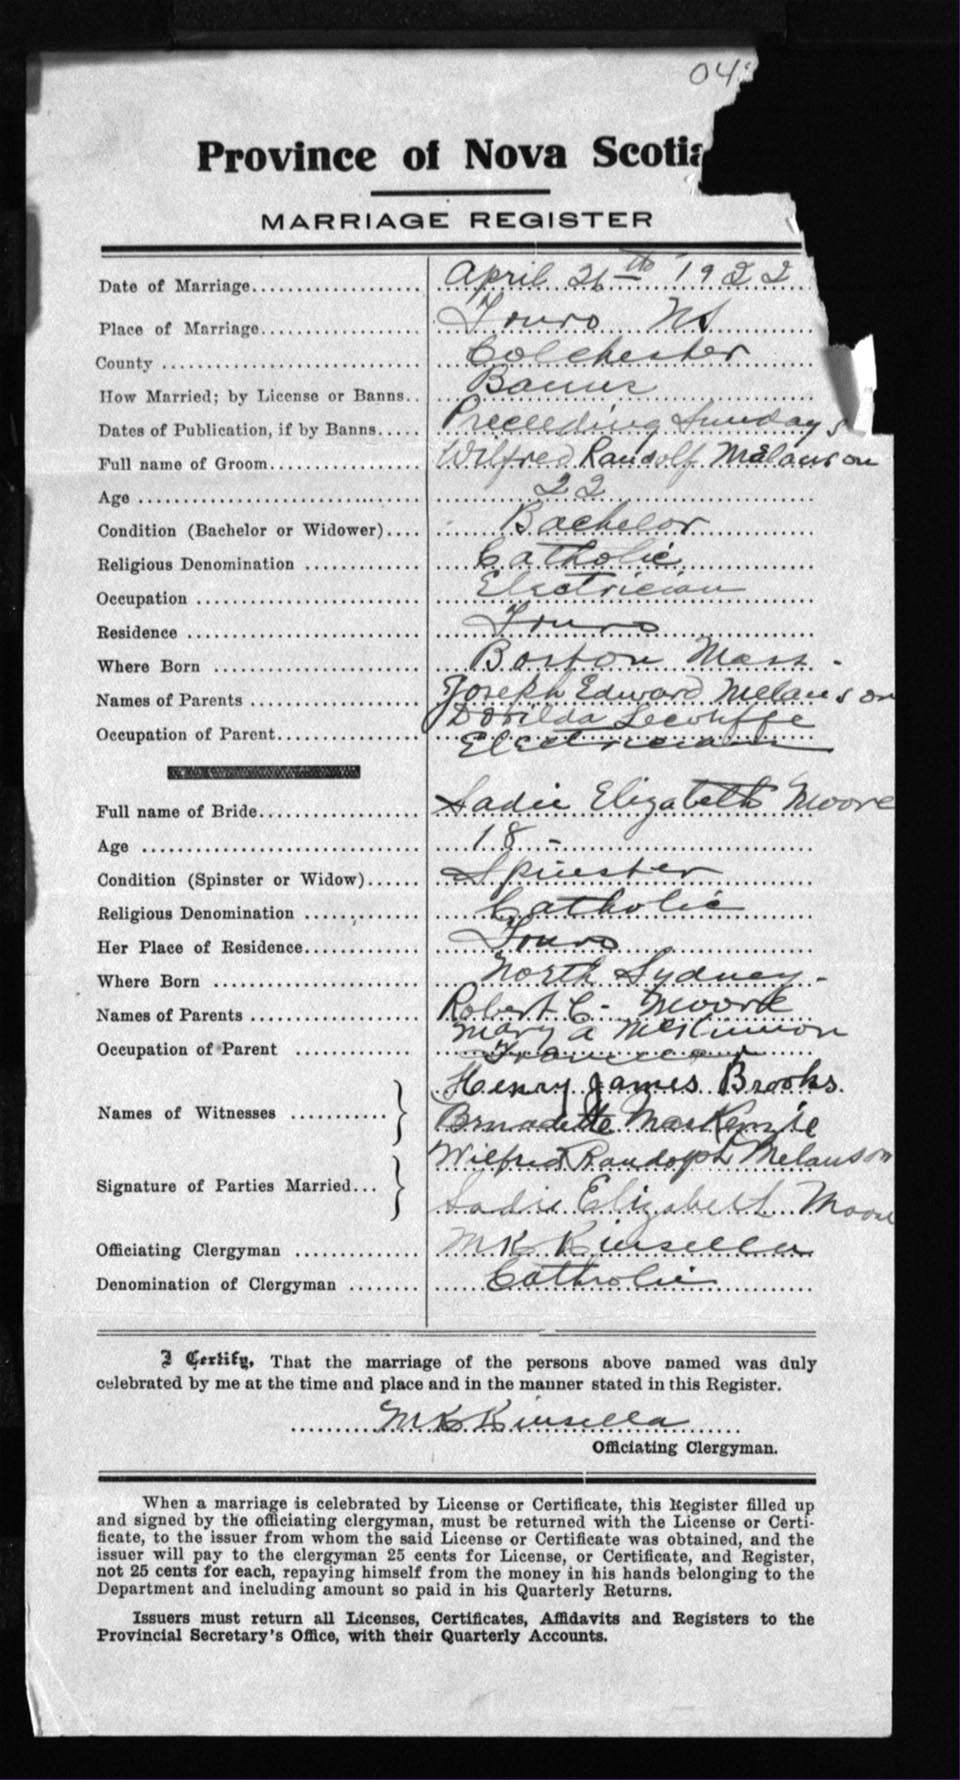 04
Province of Nova Scotia
MARRIAGE REGISTER
Date of Marriage April 26th 1922
Place of Marriage Truro NS
County Colchester
How Married; by License or Banns Banns
Dates of Publication, if by Banns Preceeding Sundays
Full name of Groom Wilfred Randolf Melanson
Age 22
Condition (Bachelor or Widower) Bachelor
Religious Denomination Catholic
Occupation Electrician
Residence Truro
Where Born Boston Mass.
Names of Parents Joseph Edward Melanson
Dorilda
Occupation of Parent Electrician
Full name of Bride Sadie Elizabeth Moore
Age 18 -
Condition (Spinster or Widow) Spinster
Religious Denomination Catholic
Her Place of Residence Truro
Where Born North Sydney -
Names of Parents Robert C. Moore
Mary A McKinnon
Occupation of Parent
Names of Witnesses Henry James Brooks.
Bernadette MacKenzie
Signature of Parties Married Wilfred Randolph Melanson
Sadie Elizabeth Moore
Officiating Clergyman M K Kinsella
Denomination of Clergyman Catholic
I Certify, That the marriage of the persons above named was duly
celebrated by me at the time and place and in the manner stated in this Register.
M K Kinsella
Officiating Clergyman.
When a marriage is celebrated by License or Certificate, this Register filled up
and signed by the officiating clergyman, must be returned with the License or Certi-
ficate, to the issuer from whom the said License or Certificate was obtained, and the
issuer will pay to the clergyman 25 cents for License, or Certificate, and Register,
not 25 cents for each, repaying himself from the money in his hands belonging to the
Department and including amount so paid in his Quarterly Returns.
Issuers must return all Licenses, Certificates, Affidavits and Registers to the
Provincial Secretary's Office, with their Quarterly Accounts.